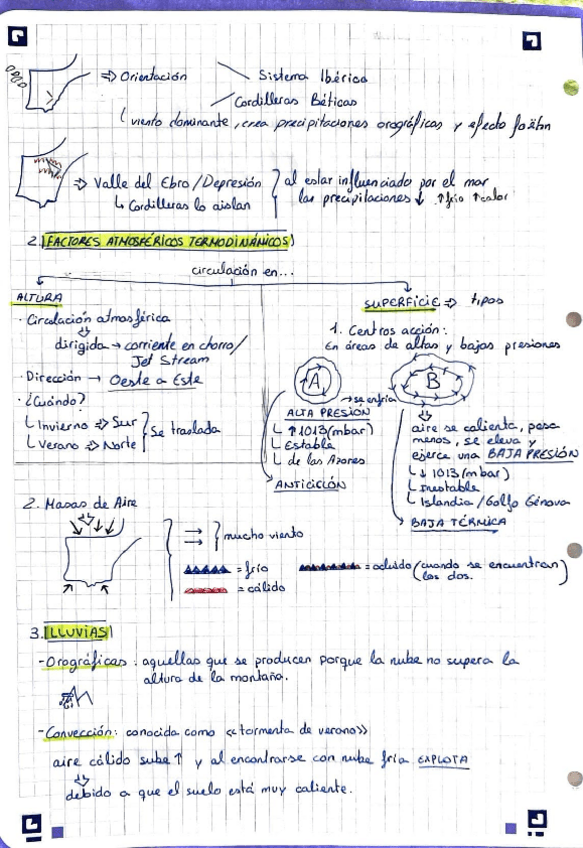 ⇒ Orientación
Sistema Ibérico
Cordilleras Béticas
viento dominante, crea precipitaciones orográficas y efecto foëhn
⇒ Valle del Ebro/Depresión
↳ Cordilleras lo aislan
al estar influenciado por el mar
las precipitaciones ↓ ↑frío ↑calor
2. FACTORES ATMOSFÉRICOS TERMODINÁMICOS
circulación en...
ALTURA
· Circulación atmosférica
dirigida → corriente en chorro/
Jet Stream
· Dirección → Oeste a Este
· ¿Cuándo?
Invierno ⇒ Sur
Verano ⇒ Norte
Se traslada
SUPERFICIE ⇒ tipos
1. Centros acción:
En áreas de altas y bajas presiones
A
→ se enfría
B
ALTA PRESIÓN
↑ 1013 (mbar)
Estable
de las Azores
ANTICICLÓN
aire se calienta, pesa
menos, se eleva y
ejerce una BAJA PRESIÓN
↓ 1013 (mbar)
Inestable
Islandia/Golfo Génova
BAJA TÉRMICA
2. Masas de Aire
mucho viento
= frío
= cálido
= ocluido (cuando se encuentran
los dos.)
3. LLUVIAS
- Orográficas: aquellas que se producen porque la nube no supera la
altura de la montaña.
- Convección: conocida como <<tormenta de verano>>
aire cálido sube ↑ y al encontrarse con nube fría EXPLOTA
debido a que el suelo está muy caliente.